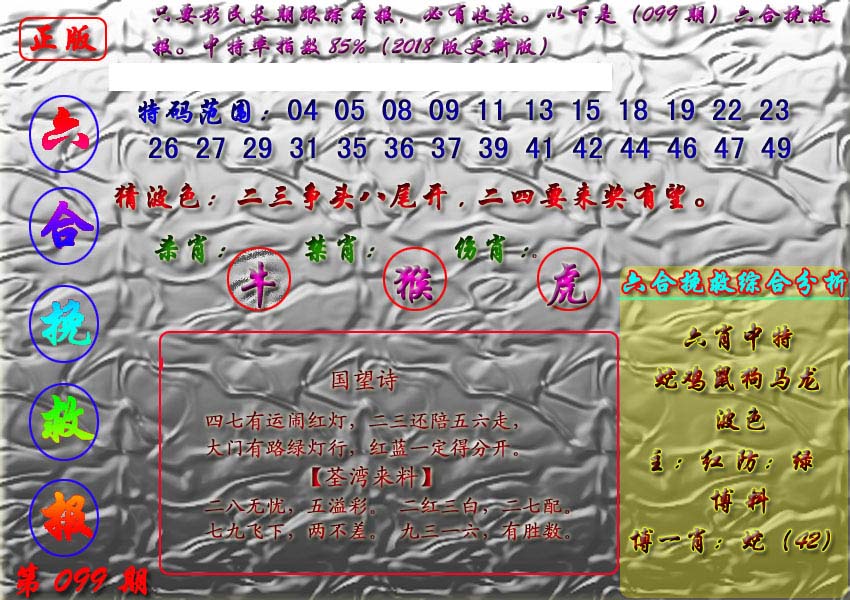 正版
只要彩民长期跟踪本报，必有收获。以下是（099期）六合挽救
报。中特率指数85%（2018版更新版）
六合挽救报
第099期
特码范围：04 05 08 09 11 13 15 18 19 22 23
26 27 29 31 35 36 37 39 41 42 44 46 47 49
猜波色：二三争头八尾开，二四要来奖有望。
杀肖：牛 禁肖：猴 伤肖：虎
国望诗
四七有运闹红灯，二三还陪五六走，
大门有路绿灯行，红蓝一定得分开。
【荃湾来料】
二八无忧，五溢彩。 二红三白，二七配。
七九飞下，两不差。 九三一六，有胜数。
六合挽救综合分析
六肖中特
蛇鸡鼠狗马龙
波色
主：红防：绿
博料
博一肖：蛇（42）